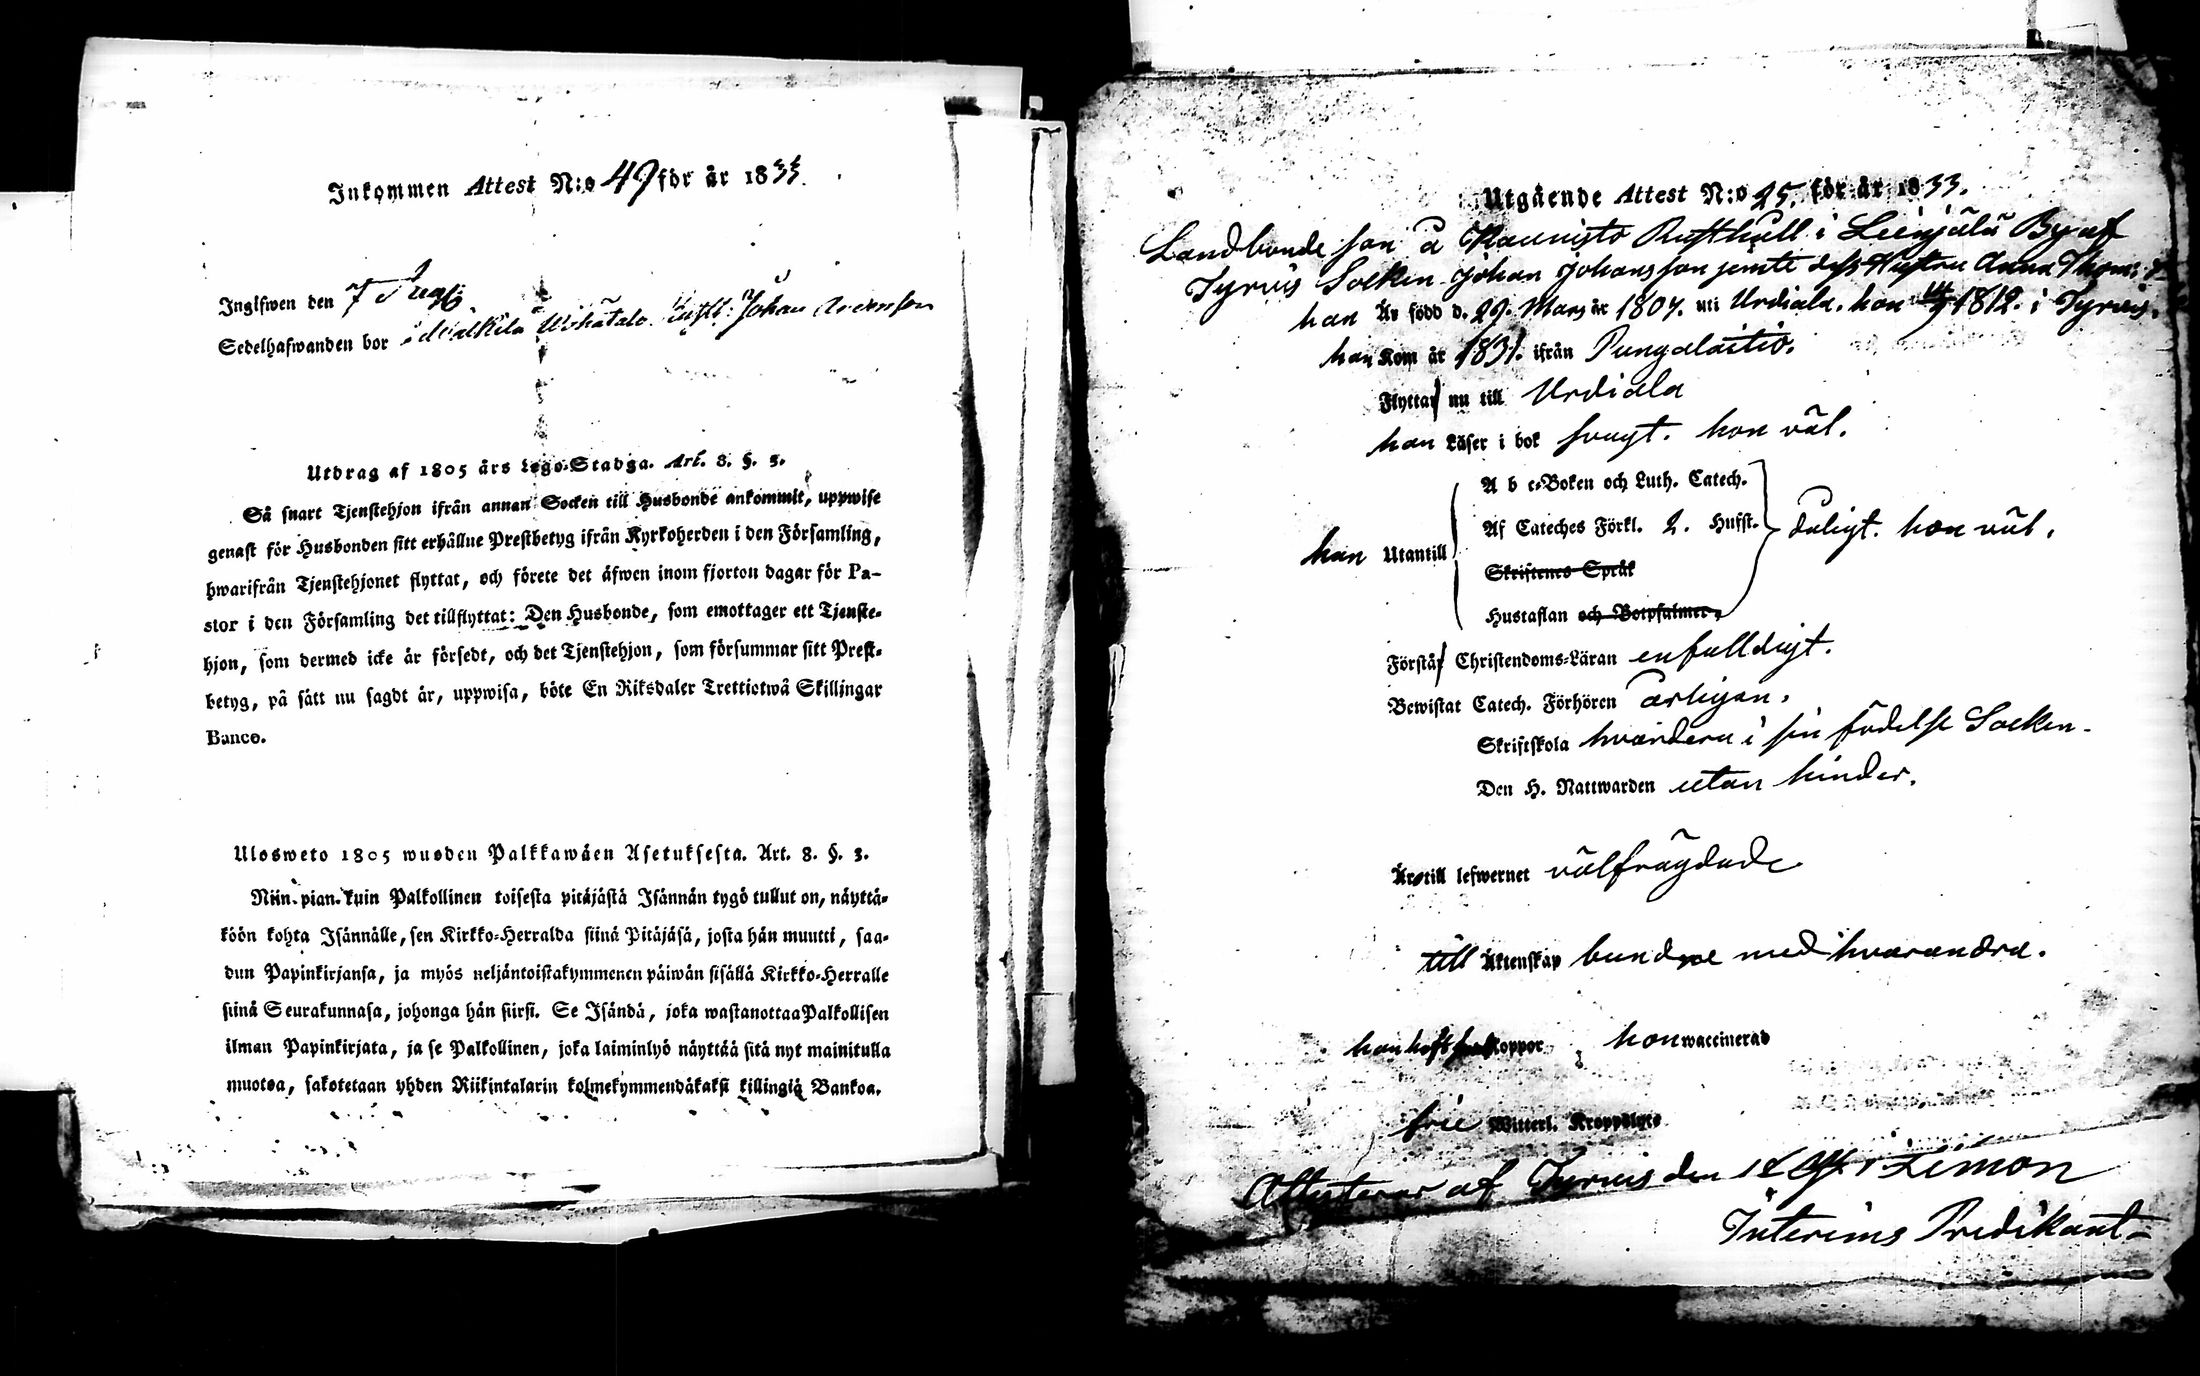 Inkommen Attest N:o 49 för år 1833.
Inglfwen den 7
Sedelhafwanden bor i Johan
Utdrag af 1805 års Lego-Stadga. Art. 8. §. 3.
Så snart Tjenstehjon ifrån annan Socken till Husbonde ankommit, uppwise
genast för Husbonden sitt erhållne Prestbetyg ifrån Kyrkoherden i den Församling,
hwarifrån Tjenstehjonet flyttat, och förete det äfwen inom fjorton dagar för Pa-
stor i den Församling det tillflyttat: Den Husbonde, som emottager ett Tjenste-
hjon, som dermed icke är försedt, och det Tjenstehjon, som försummar sitt Prest-
betyg, på sätt nu sagdt är, uppwisa, böte En Riksdaler Trettiotwå Skillingar
Banco.
Ulosweto 1805 wuoden Palkkawäen Asetuksesta. Art. 8. §. 3.
Niin pian kuin Palkollinen toisesta pitäjästä Isännän tygö tullut on, näyttä-
köön kohta Isännälle, sen Kirkko-Herralda siinä Pitäjäsä, josta hän muutti, saa-
dun Papinkirjansa, ja myös neljäntoistakymmenen päiwän sisällä Kirkko-Herralle
siinä Seurakunnasa, johonga hän siirsi. Se Isändä, joka wastanottaa Palkollisen
ilman Papinkirjata, ja se Palkollinen, joka laiminlyö näyttää sitä nyt mainitulla
muotoa, sakotetaan yhden Riikintalarin kolmekymmendäkaksi killingiä Bankoa.
Utgående Attest N:o 25. för år 1833.
Landbonde son å Kaunisto Rusthåll i Leinjälä By af
Tyrvis Socken Johan Johansson jemte dess Hustru Anna Thom:
han Är född d. 29. Mars år 1807. uti Urdiala. hon 1812. i Tyrvis.
han Kom år 1831. ifrån Pungalaitio.
Flyttar nu till Urdiala
han Läser i bok svagt. hon väl.
A b c-Boken och Luth. Catech.
han Utantill Af Cateches Förkl. 2. Hufst. daligt. hon väl.
Skriftenes Språk
Hustaflan och Botpsalmer,
Förstår Christendoms-Läran enfalldigt.
Bewistat Catech. Förhören årligen.
Skriftskola hvardera i sin födelse Socken.
Den H. Nattwarden utan hinder.
Äro till lefwernet välfrägdade
till Äktenskap bundne med hvarandra.
han haft Koppor, hon waccinerad
frie Witterl. Kroppslyte
Attesterar af Tyrvis den Limon
Interims Predikant